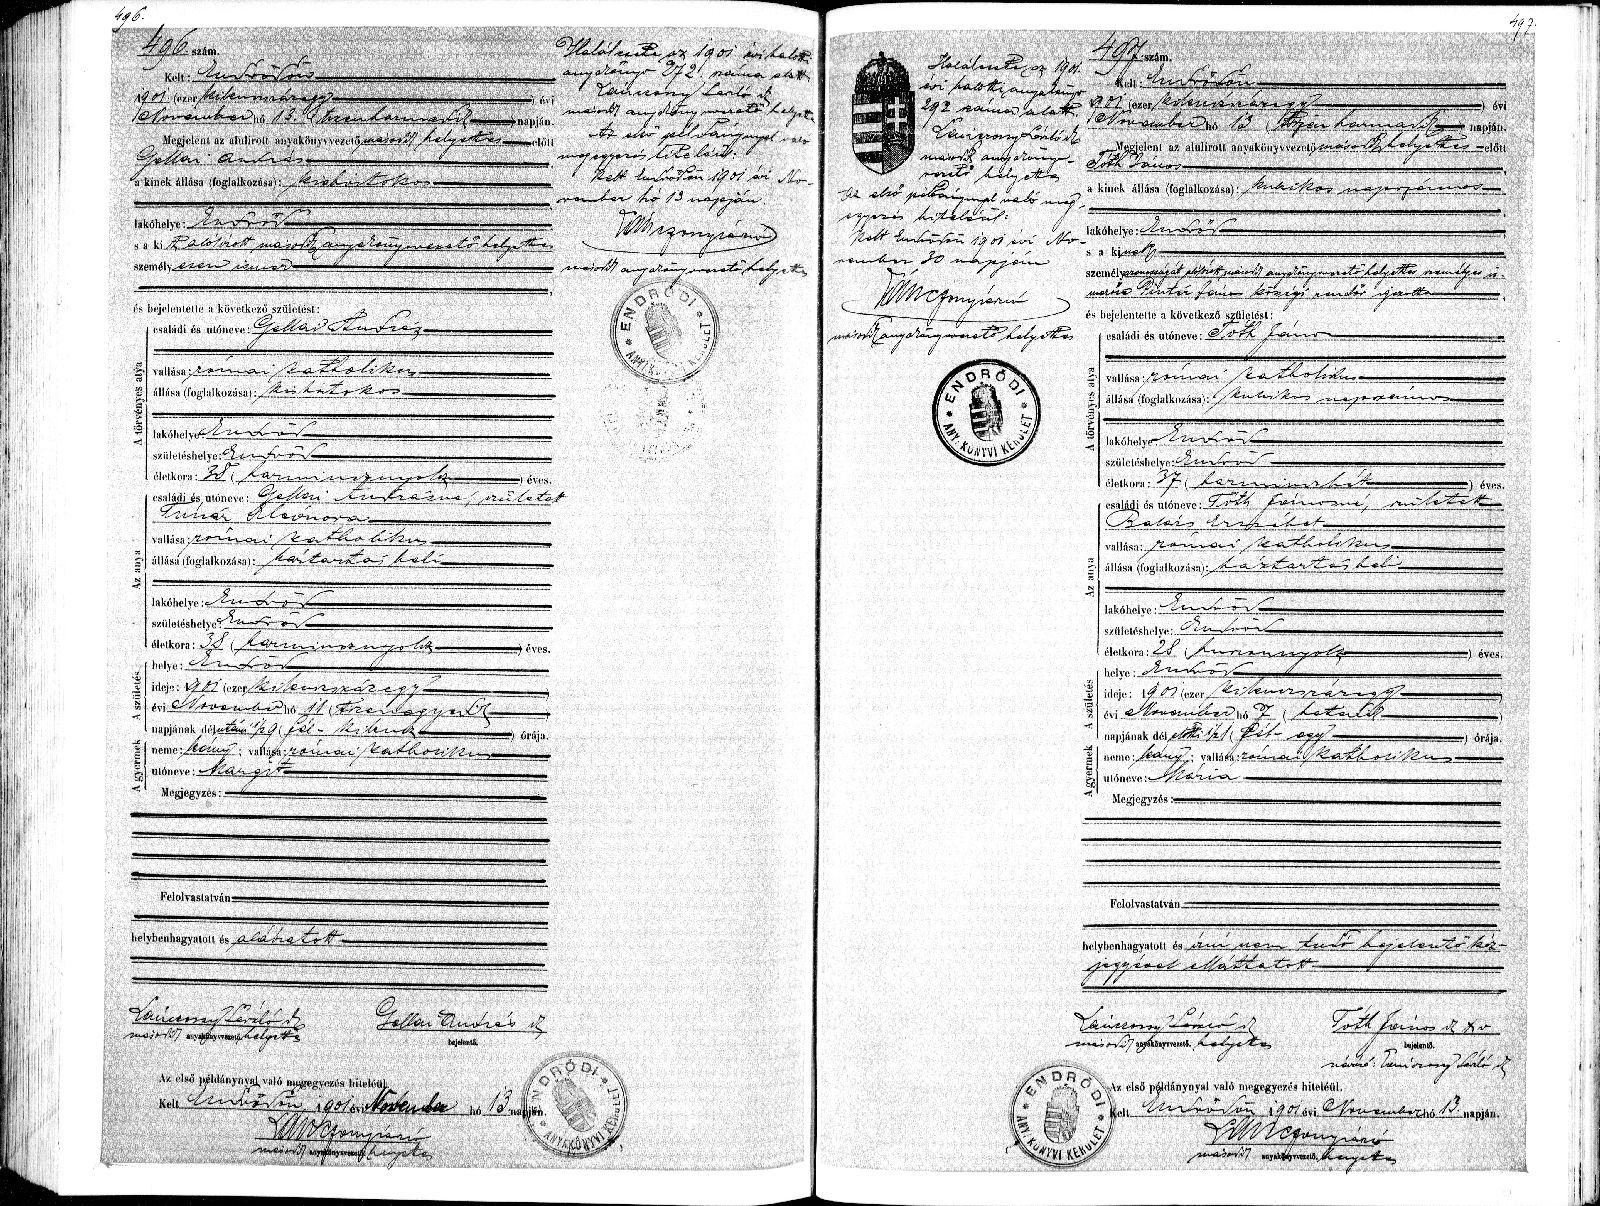 496.
496. szám.
Kelt: Endrődön
1901 (ezerkilencszázegy) évi
November hó 13. (tizenharmadik) napján.
Megjelent az alulirott anyakönyvvezető másodk helyettes előtt
Gellai András
a kinek állása (foglalkozása): kisbirtokos
lakóhelye: Endrőd
s a kit alólirott másodk anyakönyvvezető helyettes
személyesen ismer
és bejelentette a következő születést:
A törvényes atya
családi és utóneve: Gellai András
vallása: római katholikus
állása (foglalkozása): kisbirtokos
lakóhelye: Endrőd
születéshelye: Endrőd
életkora: 38 (harmincznyolcz) éves.
Az anya
családi és utóneve: Gellai Andrásné, született
Timár Eleonora
vallása: római katholikus
állása (foglalkozása): háztartásbeli
lakóhelye: Endrőd
születéshelye: Endrőd
életkora: 38 (harmincznyolcz) éves.
A születés
helye: Endrőd
ideje: 1901 (ezerkilencszázegy)
évi November hó 11 (tizenegyedik)
napjának délutáni ½9 (fél-kilencz) órája.
A gyermek
neme: leány; vallása: római katholikus
utóneve: Margit
Megjegyzés:
Felolvastatván
helybenhagyatott és aláiratott
Lánczony László
másodk anyakönyvvezető helyettes
Gellai András
bejelentő.
Az első példánynyal való megegyezés hiteléül.
Kelt Endrődön 1901 évi November hó 13 napján.
másodk anyakönyvvezető helyettes
ENDRŐDI
ANYAKÖNYVI KERÜLET
Halálozta az 1901 évi halotti
anyakönyv 272 száma alatt
Lánczony László
másodk anyakönyvvezető helyettes
Az első példánynyal való
megegyezés hiteléül.
Kelt Endrődön 1901 évi No-
vember hó 13 napján
másodk anyakönyvvezető helyettes
ENDRŐDI
ANYAKÖNYVI KERÜLET
497.
497. szám.
Kelt: Endrődön
1901 (ezerkilencszázegy) évi
November hó 13 (tizenharmadik) napján.
Megjelent az alulirott anyakönyvvezető másodk helyettes előtt
Tóth János
a kinek állása (foglalkozása): kubikos napszámos
lakóhelye: Endrőd
s a kinek
személyazonosságát alólirott másodk anyakönyvvezető helyettes személyes is-
merőse Pintér János községi rendőr igazolta
és bejelentette a következő születést:
A törvényes atya
családi és utóneve: Tóth János
vallása: római katholikus
állása (foglalkozása): kubikos napszámos
lakóhelye: Endrőd
születéshelye: Endrőd
életkora: 37 (harminczhét) éves.
Az anya
családi és utóneve: Tóth Jánosné, született
Balázs Erzsébet
vallása: római katholikus
állása (foglalkozása): háztartásbeli
lakóhelye: Endrőd
születéshelye: Endrőd
életkora: 28 (huszonnyolcz) éves.
A születés
helye: Endrőd
ideje: 1901 (ezerkilencszázegy)
évi November hó 7 (hetedik)
napjának délelőtti ½1 (fél-egy) órája.
A gyermek
neme: leány; vallása: római katholikus
utóneve: Mária
Megjegyzés:
Felolvastatván
helybenhagyatott és irni nem tudó bejelentő kéz-
jegyével elláttatott
Lánczony László
másodk anyakönyvvezető helyettes
Tóth János
bejelentő.
névíró: Lánczony László
Az első példánynyal való megegyezés hiteléül.
Kelt Endrődön 1901 évi November hó 13. napján.
másodk anyakönyvvezető helyettes
ENDRŐDI
ANYAKÖNYVI KERÜLET
Halálozta az 1901.
évi halotti anyakönyv
292 száma alatt
Lánczony László
másodk anyakönyv-
vezető helyettes
Az első példánynyal való meg-
egyezés hiteléül:
Kelt Endrődön 1901 évi No-
vember 30 napján
másodk anyakönyvvezető helyettes
ENDRŐDI
ANYAKÖNYVI KERÜLET